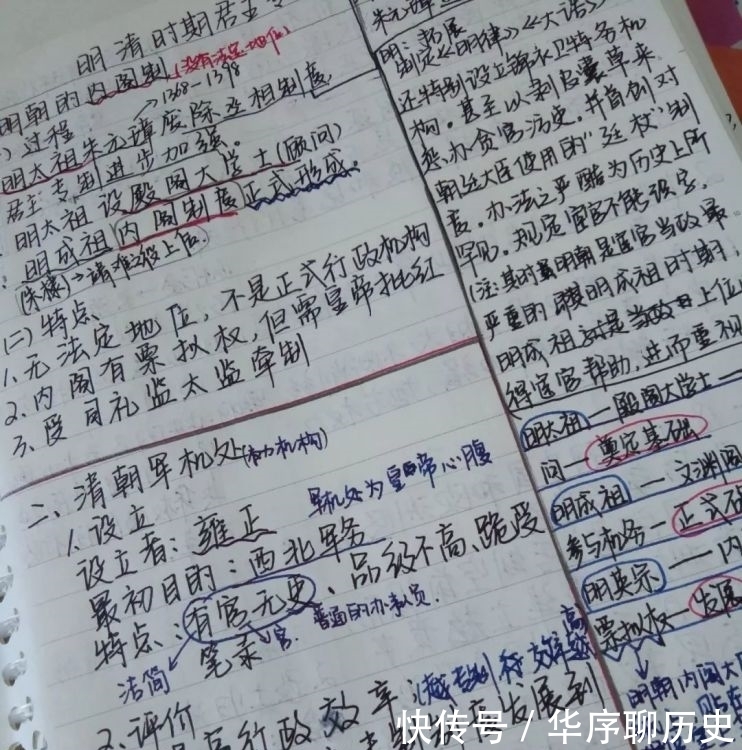 明清时期君主专
明朝的内阁制(没有法定地位)
过程 →1368-1398
明太祖朱元璋废除丞相制度,
君主专制进一步加强。
明太祖设殿阁大学士(顾问)
明成祖内阁制度正式形成。
(朱棣)→靖难之役上位.
(二)特点
1、无法定地位,不是正式行政机构
2、内阁有票拟权,但需皇帝批红
3、受司礼监太监牵制
二、清朝军机处
1、设立 军机处为皇帝心腹
设立者:雍正
最初目的:西北军务
特点:有官无吏、品级不高、跪受
笔录 官. 普通的办事员.
洁简
2、评价
行政效率
发展到
明:
制定《明律》《大诰》
还特别设立锦衣卫特务机
构。甚至以剥皮囊草来
惩办贪官污吏。并首创对
朝廷大臣使用的"廷杖"制
度。办法之严酷为历史上所
罕见。规定宦官不能识字,
(注:其时明朝是宦官当政最
严重的 明成祖时期,
明成祖 是 上位
得宦官帮助,进而重视
明太祖—殿阁大学士—
问—奠定基础
明成祖—文渊阁
参与机务—正式
明英宗—内
票拟权—发展
明朝内阁大
快传号/华序聊历史